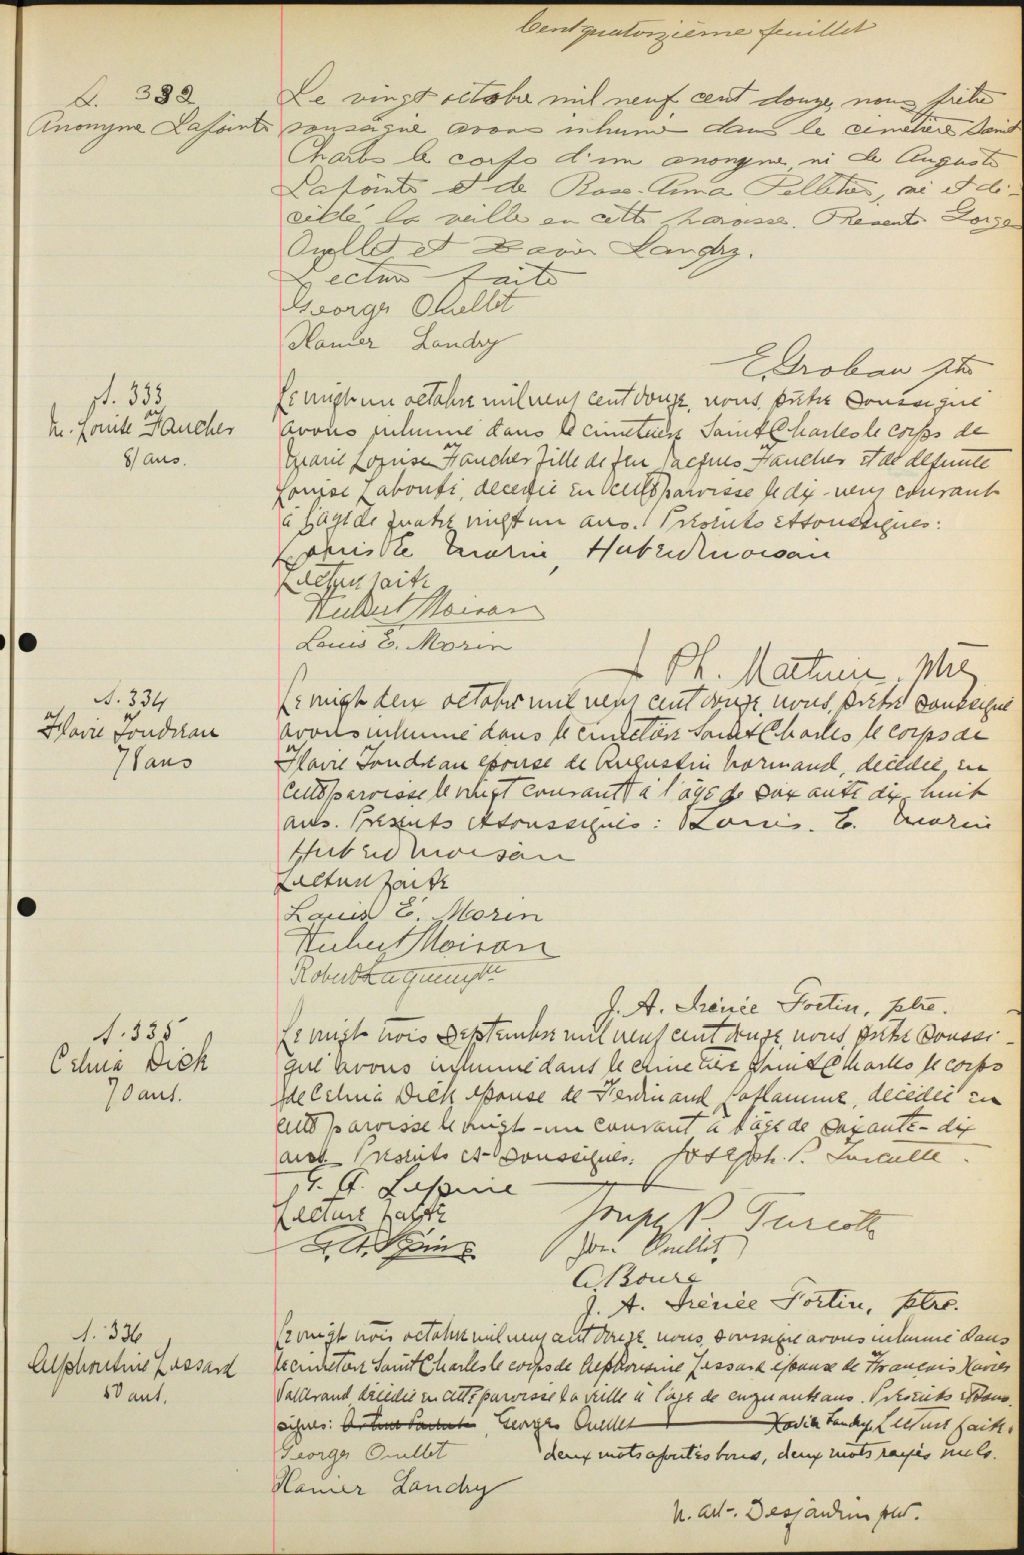 Cent quatorzième feuillet
S. 332
Anonyme Lapointe
Le vingt octobre mil neuf cent douze, nous prêtre
soussigné avons inhumé dans le cimetière Saint
Charles le corps d'un anonyme, né de Auguste
Lapointe et de Rose-Anna Pelletier, né et dé-
cédé la veille en cette paroisse. Présents Georges
Ouellet et Xavier Landry.
Lecture faite
Georges Ouellet
Xavier Landry
E. Grobeau ptre
S. 333
M. Louise Faucher
81 ans.
Le vingt un octobre mil neuf cent douze, nous, prêtre soussigné
avons inhumé dans le cimetière Saint Charles le corps de
Marie Louise Faucher fille de feu Jacques Faucher et de défunte
Louise Labonté, décédée en cette paroisse le dix-neuf courant
à l'âge de quatre vingt un ans. Présents et soussignés:
Louis E. Morin, Hubert Moisan
Lecture faite
Hubert Moisan
Louis E. Morin
J Ph. Mathieu, ptre
S. 334
Flavie Jondreau
78 ans
Le vingt deux octobre mil neuf cent douze, nous, prêtre soussigné
avons inhumé dans le cimetière Saint Charles le corps de
Flavie Jondreau épouse de Augustin Normand, décédée en
cette paroisse le vingt courant à l'âge de soixante dix-huit
ans. Présents et soussignés: Louis. E. Morin
Hubert Moisan
Lecture faite
Louis E. Morin
Hubert Moisan
Robert Lagueux
J. A. Irénée Fortin, ptre.
S. 335
Celina Dick
70 ans.
Le vingt trois septembre mil neuf cent douze, nous, prêtre soussi-
gné avons inhumé dans le cimetière Saint Charles le corps
de Celina Dick épouse de Ferdinand Laflamme, décédée en
cette paroisse le vingt-un courant à l'âge de soixante-dix
ans. Présents et soussignés: Joseph. P. Turcotte.
G. A. Lépine
Lecture faite
Joseph P. Turcotte
G. A. Lépine
Jos. Ouellet
J. A. Irénée Fortin, ptre.
S. 336
Alphonsine Lessard
50 ans.
Le vingt trois octobre mil neuf cent douze, nous, soussigné avons inhumé dans
le cimetière Saint Charles le corps de Alphonsine Lessard épouse de François Xavier
décédée en cette paroisse la veille à l'âge de cinquante ans. Présents et sous-
signés: Georges Ouellet Xavier Landry Lecture faite.
Georges Ouellet deux mots ajoutés bons, deux mots rayés nuls.
Xavier Landry
N. Art. Desjardins ptre.